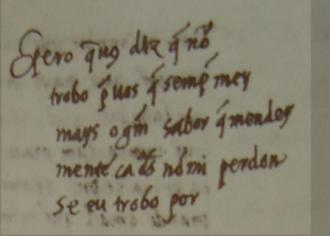 Epero q̄uos diz q̄ nō
trobo ꝑ uos q̄ semꝑ mey
mays o gm̄ sabor q̄ mendey
mente ca d̄s nō mi perdon
se eu trobo por